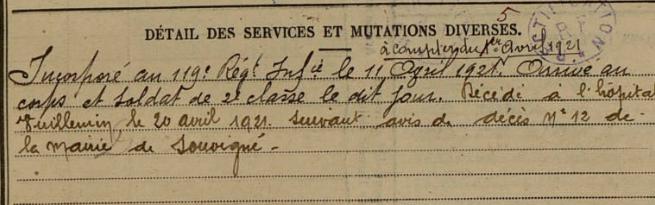 5
DÉTAIL DES SERVICES ET MUTATIONS DIVERSES.
à compter du 1er Avril 1921
Incorporé au 119e Régt Infie le 11 Avril 1921. Arrivé au
corps et soldat de 2e classe le dit jour. Décédé à l'hôpital
Vuillemin, le 20 avril 1921. suivant avis de décès N° 12 de
la mairie de Souvigné.